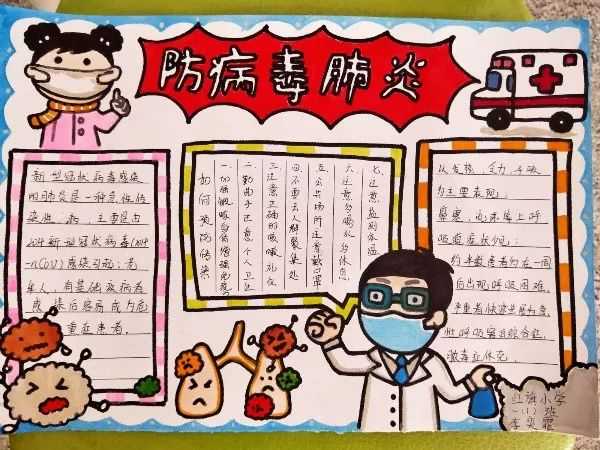 防病毒肺炎
新型冠状病毒感染
的肺炎是一种急性传
染性肺 主要是由
2019新型冠状病毒(2019
-nCoV)感染引起；老
年人，有基础疾病者
感染后容易成为危
重症患者。
如何预防传染
一.加强锻炼身体增强免疫力
二.勤洗手注意个人卫生
三.注意正确的咳嗽礼仪
四.不要去人群聚集处
五.公共场所注意戴口罩
六.注意多喝水多休息
七.注意监测体温
以发热、乏力、干咳
为主要表现。
鼻塞、流涕等上呼
吸道症状少见；
约半数患者约在一周
后出现呼吸困难，
严重者快速进展为急
性呼吸窘迫综合症，
脓毒症休克
红旗小学
一(1)班
李奕霏